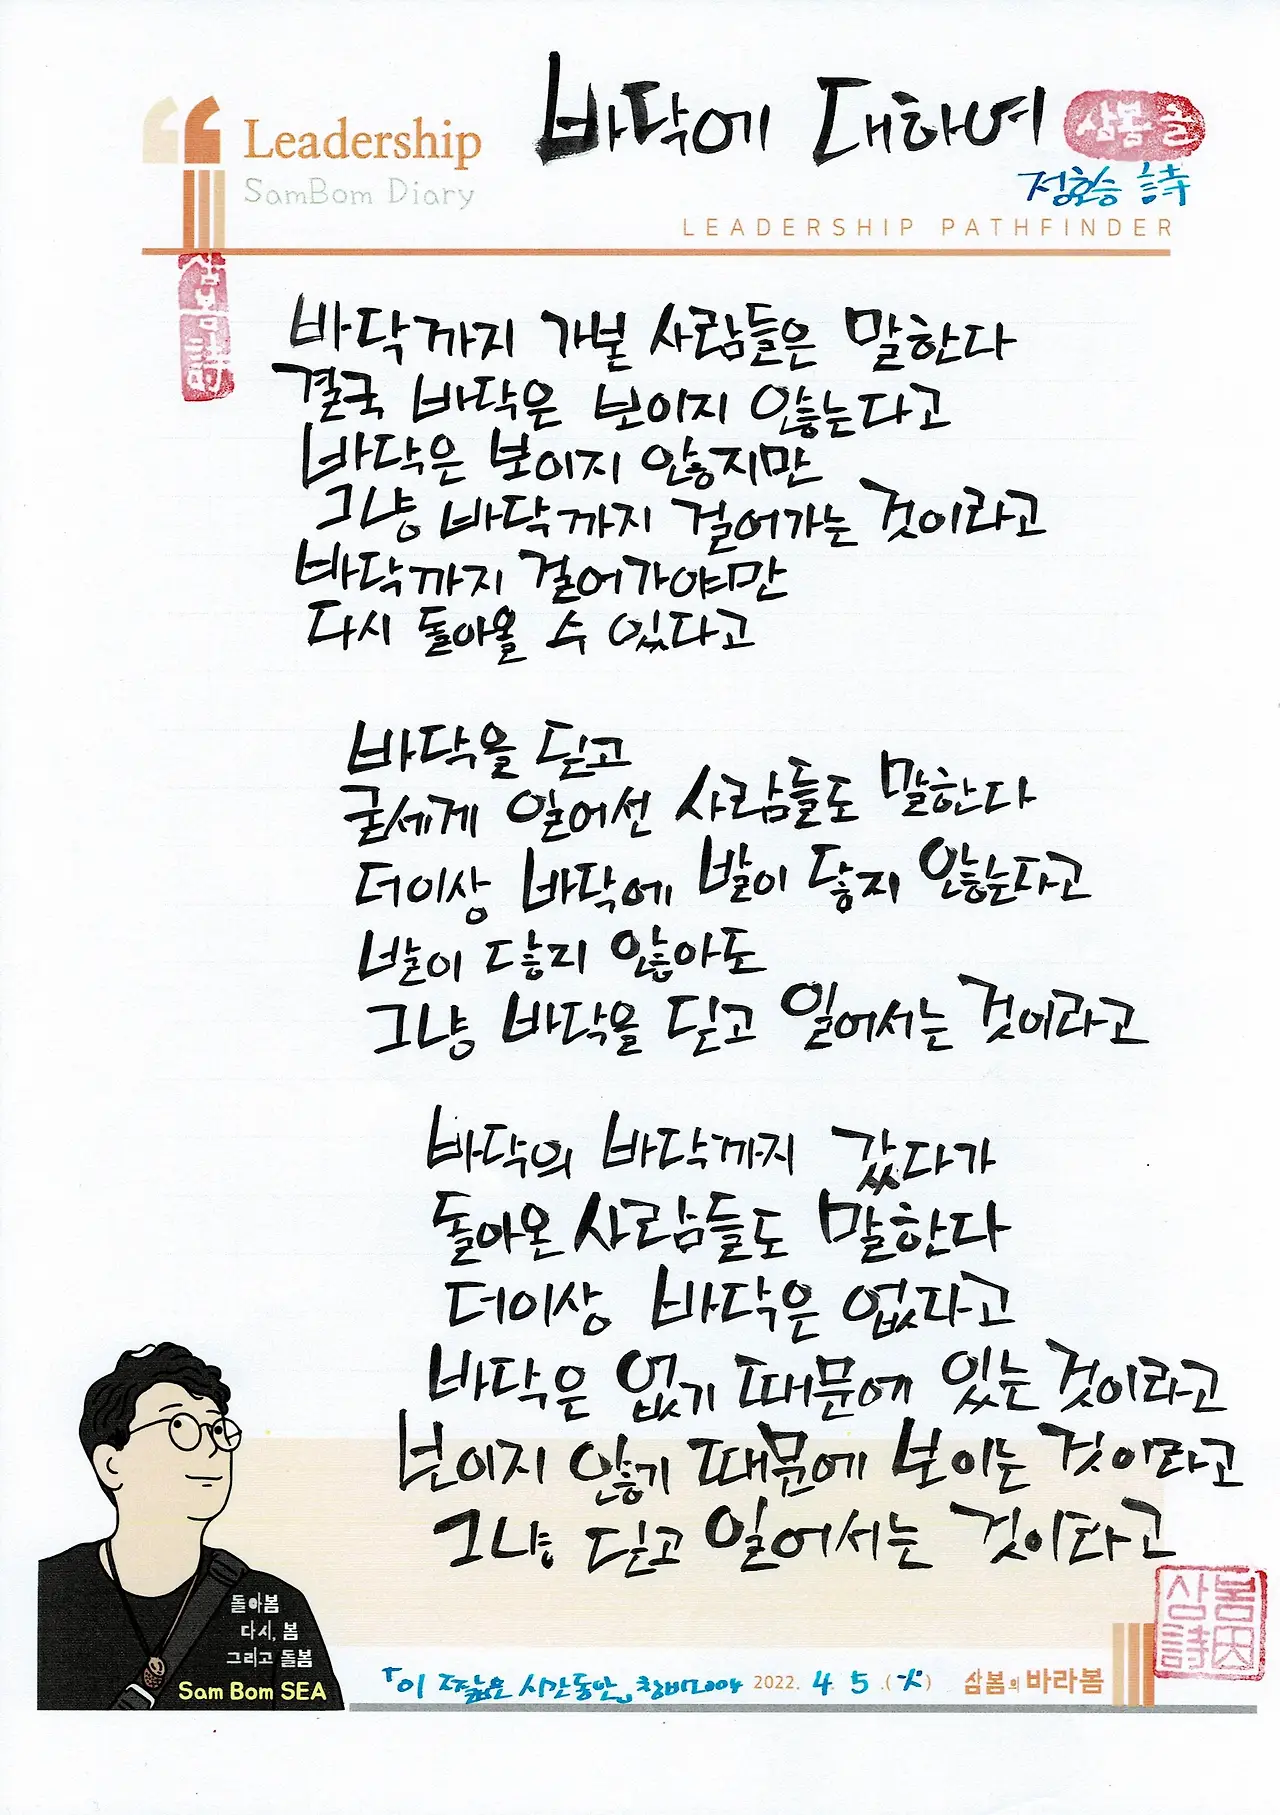 바닥에 대하여
삼봄 글
Leadership
SamBom Diary
정호승 詩
LEADERSHIP PATHFINDER
삼봄詩
바닥까지 가본 사람들은 말한다
결국 바닥은 보이지 않는다고
바닥은 보이지 않지만
그냥 바닥까지 걸어가는 것이라고
바닥까지 걸어가야만
다시 돌아올 수 있다고
바닥을 딛고
굳세게 일어선 사람들도 말한다
더이상 바닥에 발이 닿지 않는다고
발이 닿지 않아도
그냥 바닥을 딛고 일어서는 것이라고
바닥의 바닥까지 갔다가
돌아온 사람들도 말한다
더이상 바닥은 없다고
바닥은 없기 때문에 있는 것이라고
보이지 않기 때문에 보이는 것이라고
그냥 딛고 일어서는 것이라고
돌아봄
다시, 봄
그리고 돌봄
Sam Bom SEA
「이 짧은 시간동안」 창비2004 2022. 4. 5 .(火) 삼봄의 바라봄